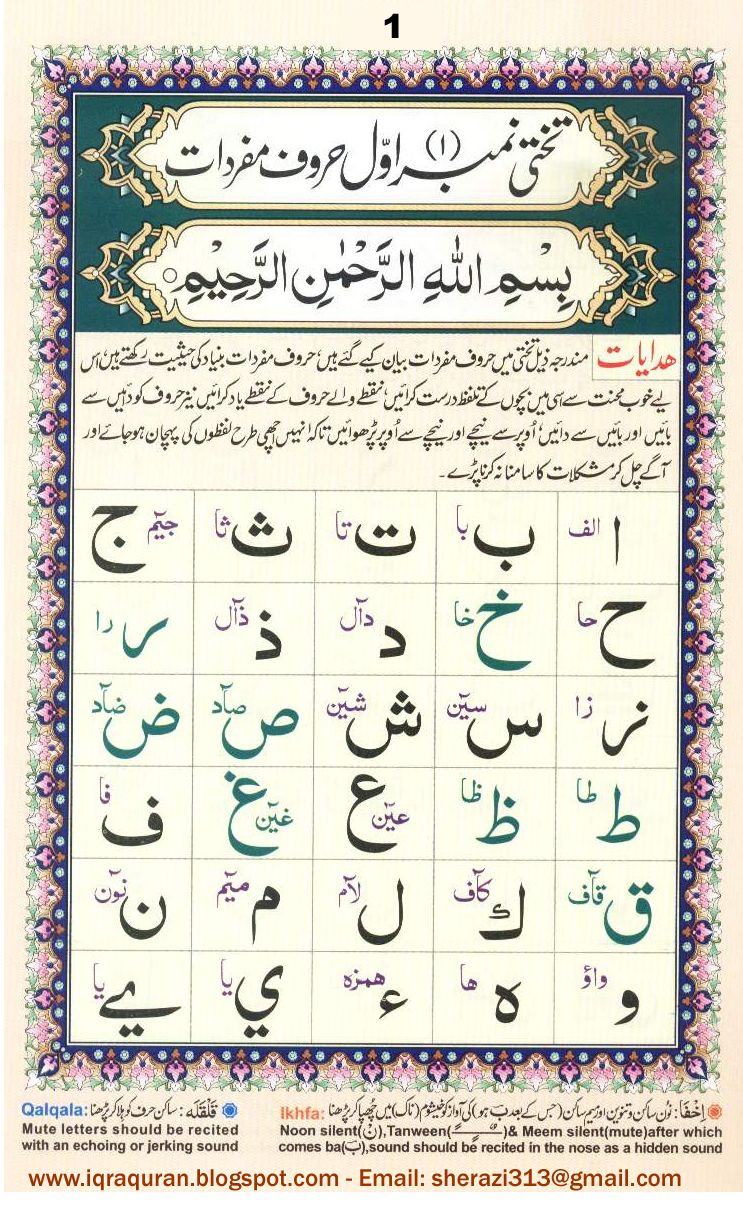 1
تختی نمبر (۱) اوّل حروف مفردات
بِسْمِ اللهِ الرَّحْمٰنِ الرَّحِيْمِ ○
ھدایات مندرجہ ذیل تختی میں حروف مفردات بیان کیے گئے ہیں، حروف مفردات بنیاد کی حیثیت رکھتے ہیں، اس
لیے خوب محنت سے اسی میں بچوں کے تلفظ درست کرائیں، نقطے والے حروف کے نقطے یاد کرائیں نیز حروف کو دائیں سے
بائیں اور بائیں سے دائیں، اُوپر سے نیچے اور نیچے سے اُوپر پڑھوائیں تاکہ انہیں اچھی طرح لفظوں کی پہچان ہو جائے اور
آگے چل کر مشکلات کا سامنا نہ کرنا پڑے۔
ا الف ب با ت تا ث ثا ج جیٓم
ح حا خ خا د دآل ذ ذآل ر را
ز زا س سیٓن ش شیٓن ص صآد ض ضآد
ط طا ظ ظا ع عیٓن غ غیٓن ف فا
ق قآف ك كآف ل لآم م میٓم ن نوٓن
و واؤ ه ها ء همزه ي یا ے یا
اِخْفَا: نُون ساکن و تنوین اور میم ساکن (جس کے بعد ب ہو) کی آواز کو خیشوم (ناک) میں چُھپا کر پڑھنا Ikhfa:
Noon silent(نْ),Tanween(ـًـٍـٌ)& Meem silent(mute)after which
comes ba(بَ),sound should be recited in the nose as a hidden sound
قَلْقَلَه: ساکن حرف کو ہلا کر پڑھنا Qalqala:
Mute letters should be recited
with an echoing or jerking sound
www.iqraquran.blogspot.com - Email: sherazi313@gmail.com